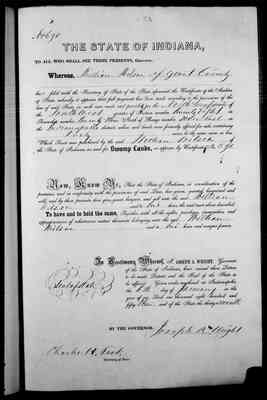 No 690
THE STATE OF INDIANA,
TO ALL WHO SHALL SEE THESE PRESENTS, GREETING:
Whereas, William Wilson of Grant County
has filed with the Secretary of State of the State aforesaid the Certificate of the Auditor
of State whereby it appears that full payment has been made according to the provisions of the
North East fourth of
South West quarter of Section number Twenty Eight
Township number Twenty Three North of Range number
Indianapolis district
Forty
Which Tract was purchased by the said William Wilson
the State of Indiana as and for Swamp Lands, as appears by Certificate No
Now, Know Ye, That the State of Indiana, in consideration of the
premises and in conformity with the provisions of said Law, has given, granted, bargained and
sold, and by these presents does give, grant, bargain, and sell unto the said William
Wilson and his heirs the said tract above described:
To have and to hold the same, Together with all the rights, privileges, immunities and
appurtenances of whatsoever nature thereunto belonging unto the said William
Wilson and to his heirs and assigns forever.
In Testimony Whereof, I, JOSEPH A. WRIGHT, Governor
of the State of Indiana, have caused these Letters
to be made Patent and the Seal of the State to
be affixed. Given under my hand at Indianapolis
the day of January in the
year of our Lord one thousand eight hundred and
fifty and of the State the thirty
Seal of State
BY THE GOVERNOR.
Joseph A Wright
Charles H. Test
Secretary of State